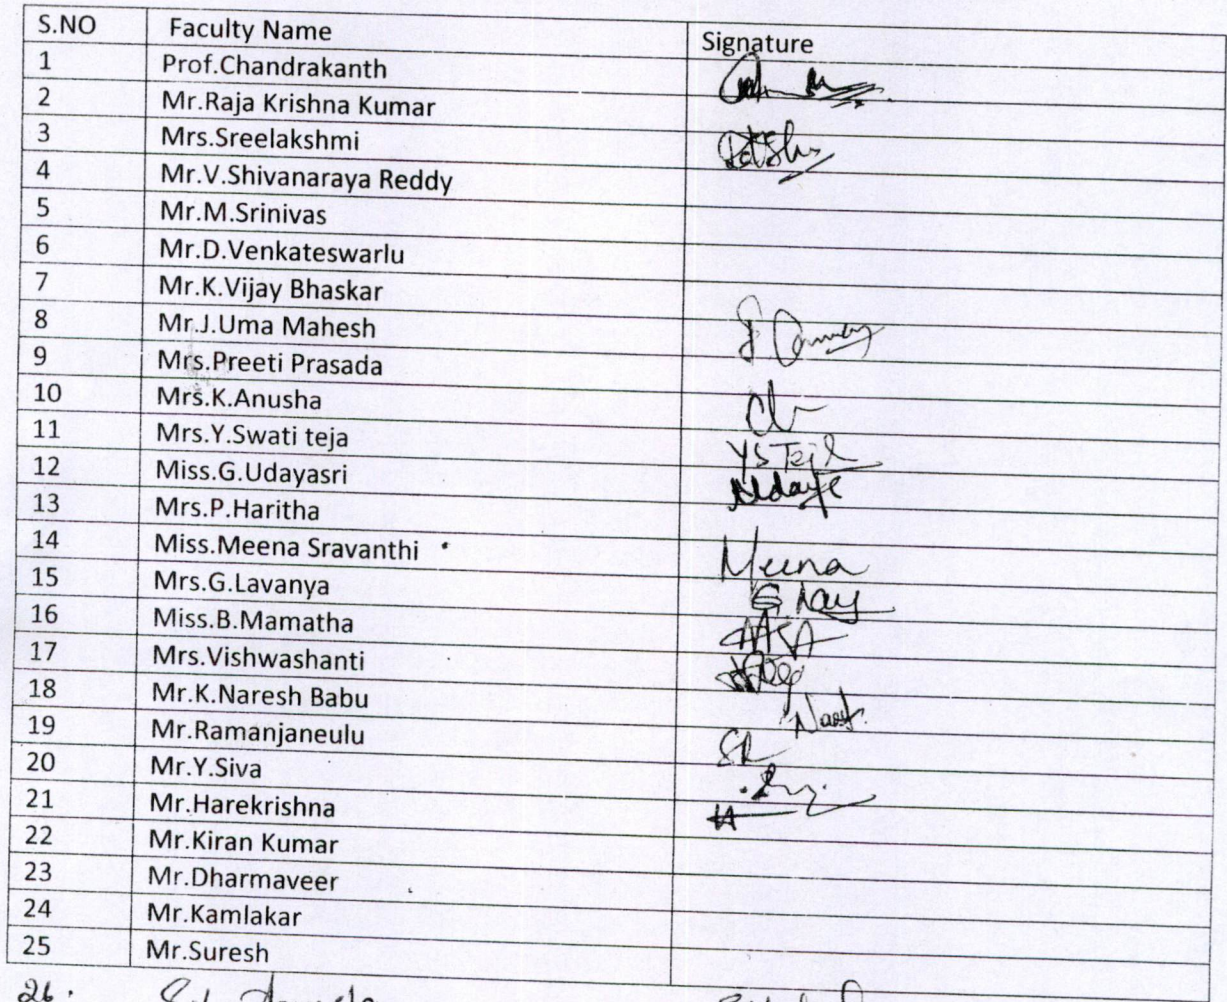 S.NO Faculty Name Signature
1 Prof.Chandrakanth
2 Mr.Raja Krishna Kumar
3 Mrs.Sreelakshmi
4 Mr.V.Shivanaraya Reddy
5 Mr.M.Srinivas
6 Mr.D.Venkateswarlu
7 Mr.K.Vijay Bhaskar
8 Mr.J.Uma Mahesh
9 Mrs.Preeti Prasada
10 Mrs.K.Anusha
11 Mrs.Y.Swati teja YS Teja
12 Miss.G.Udayasri
13 Mrs.P.Haritha
14 Miss.Meena Sravanthi Meena
15 Mrs.G.Lavanya
16 Miss.B.Mamatha
17 Mrs.Vishwashanti
18 Mr.K.Naresh Babu
19 Mr.Ramanjaneulu
20 Mr.Y.Siva
21 Mr.Harekrishna
22 Mr.Kiran Kumar
23 Mr.Dharmaveer
24 Mr.Kamlakar
25 Mr.Suresh
26.